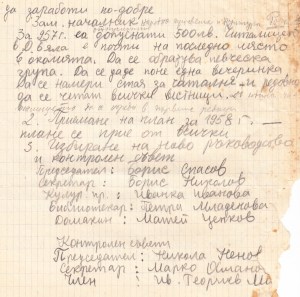 за заработи по-добре
Зам. началник
За 25 кг. са допуснати 500 лв. Читалището
в Д. вяла е почти на последно място
в околията. Да се образува певческа
група. Да се даде поне една вечеринка
Да се намери стая за читалище и редовно
да се четат всички вестници.
2. Приемане на план за 1958 г. —
планът се прие от всички
3. Избиране на ново ръководство
и контролен съвет
Председател: Борис Спасов
Секретар: Борис Николов
Култур. пр.: Иванка Иванова
Библиотекар: Петра Младенова
Домакин: Матей Цеков
Контролен съвет
Председател: Никола Ненов
Секретар: Марко
Член: Цв. Георгиев